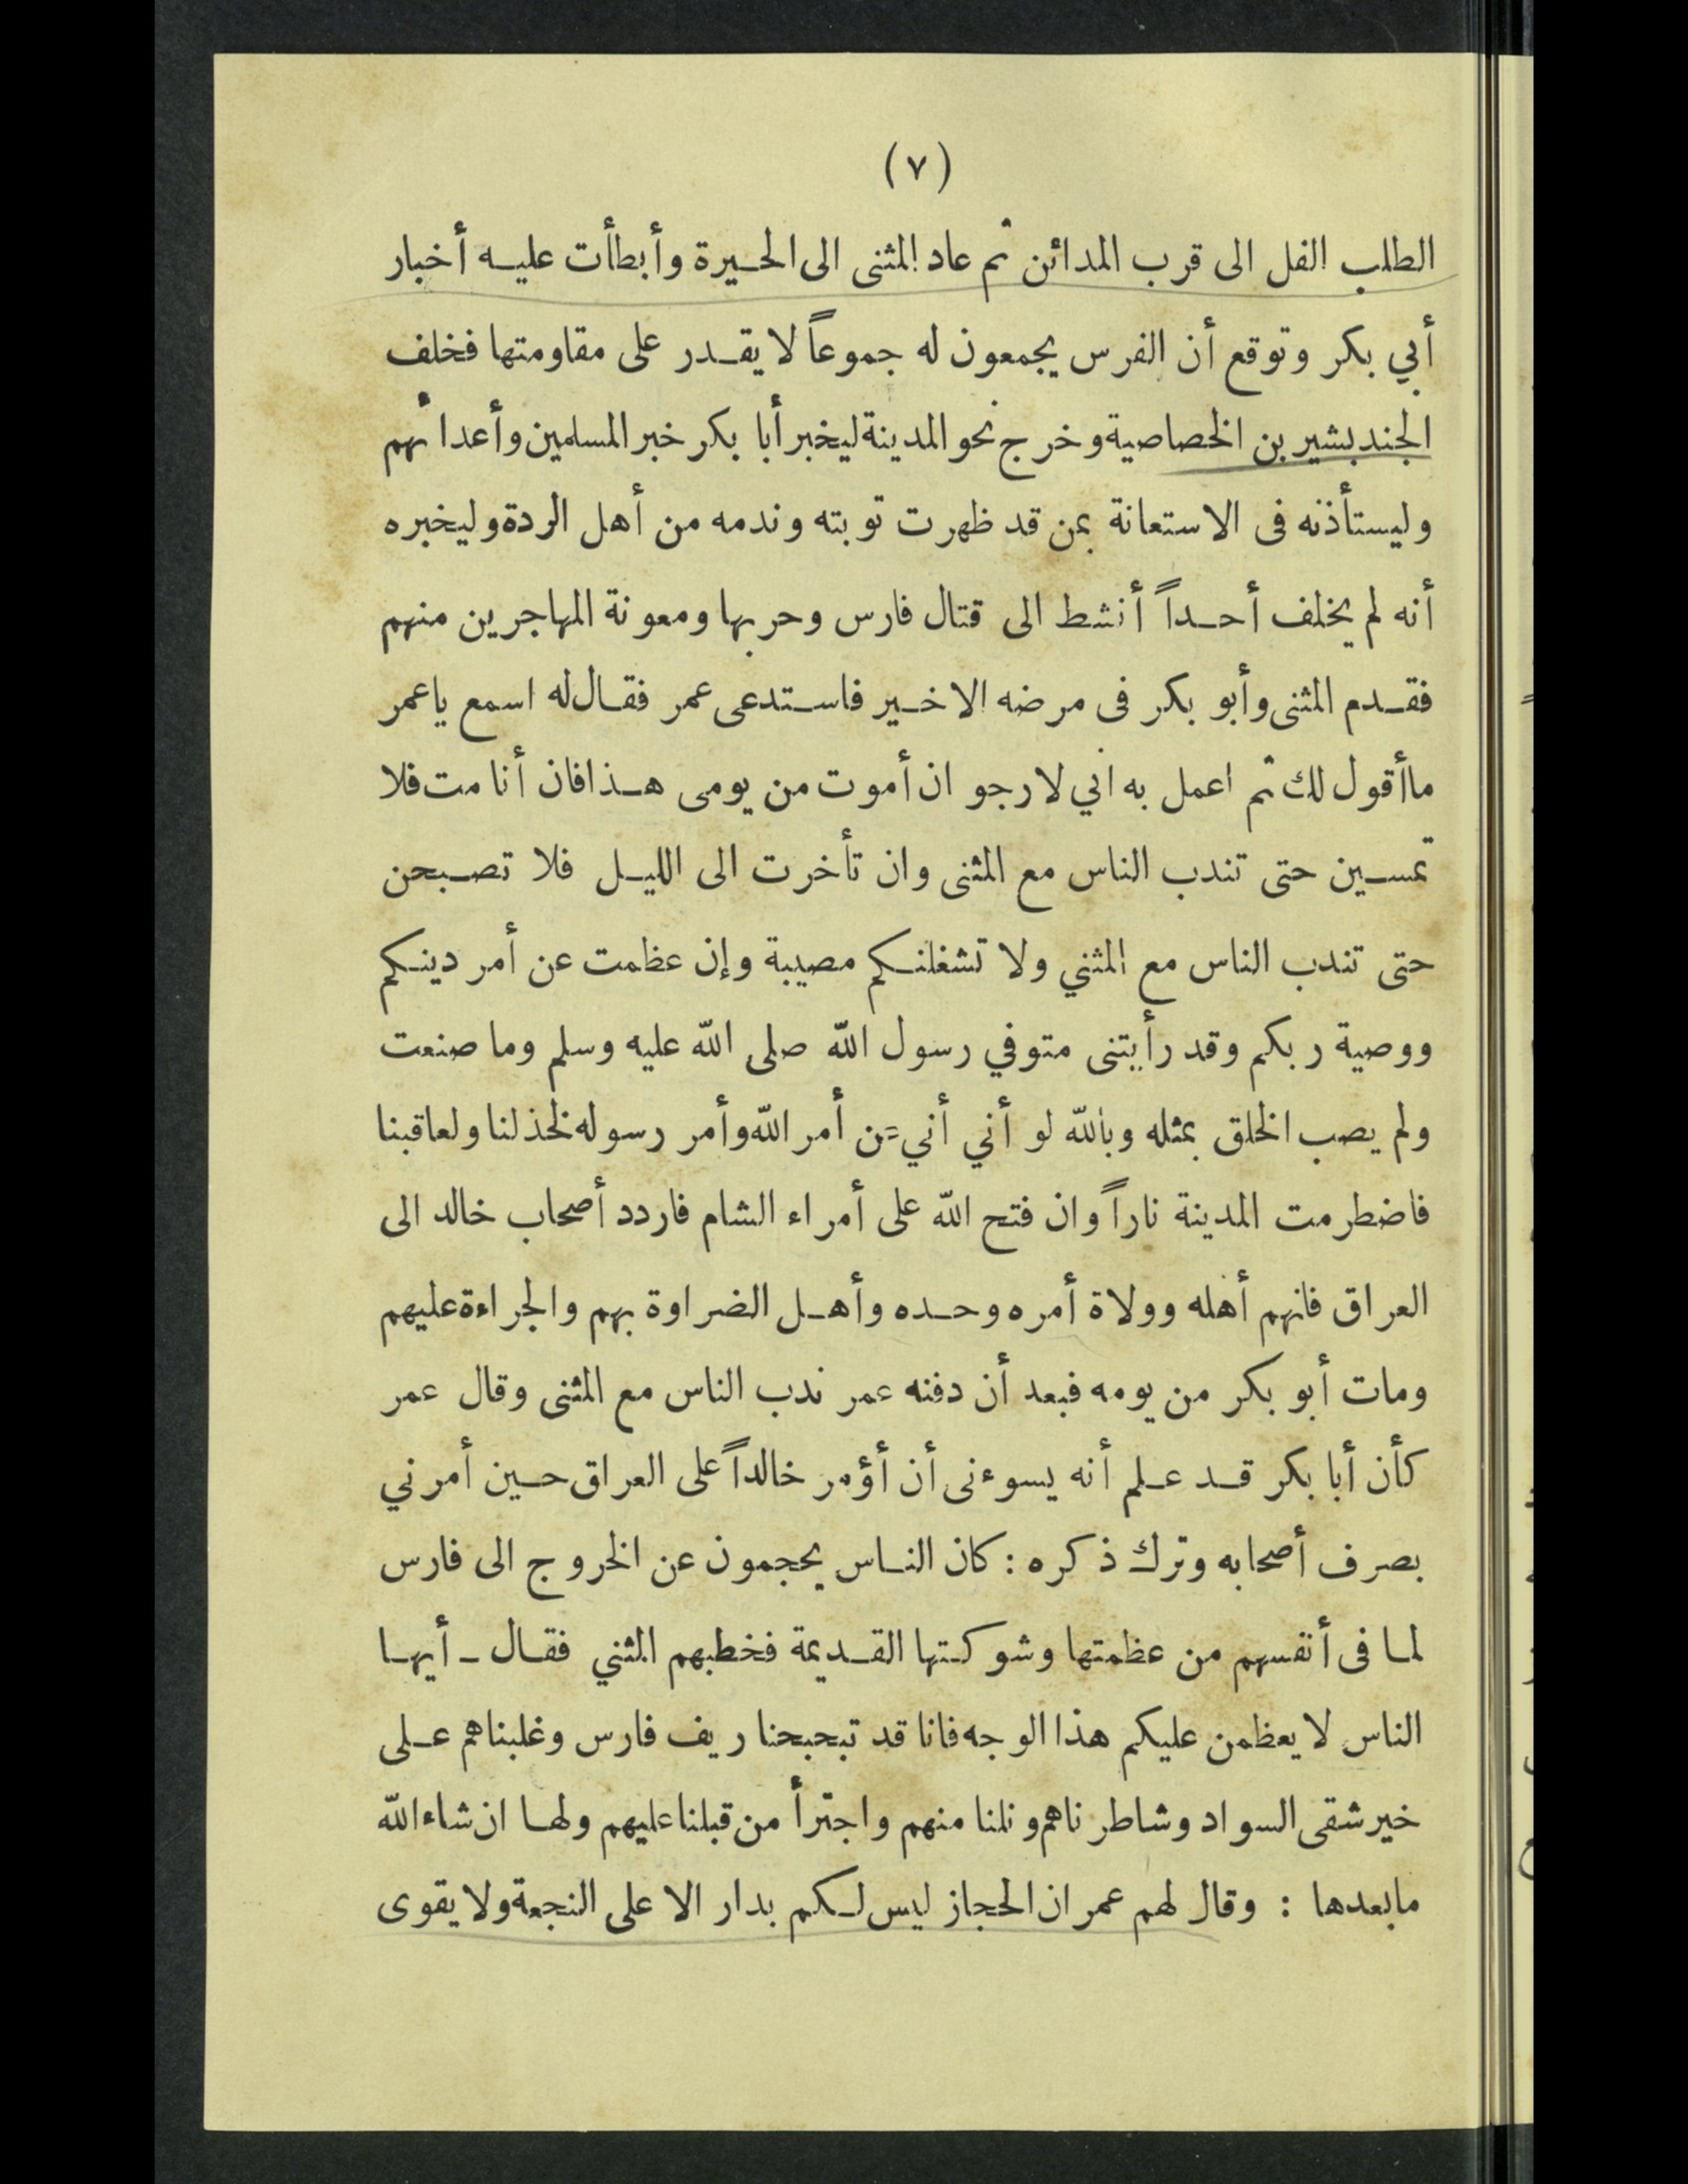 (٧)
الطلب الفل الى قرب المدائن ثم عاد المثنى الى الحيرة وأبطأت عليه أخبار
أبي بكر وتوقع أن الفرس يجمعون له جموعاً لا يقدر على مقاومتها فخلف
الجند بشير بن الخصاصية وخرج نحو المدينة ليخبر أبا بكر خبر المسلمين وأعدائهم
وليستأذنه فى الاستعانة بمن قد ظهرت توبته وندمه من أهل الردة وليخبره
أنه لم يخلف أحداً أنشط الى قتال فارس وحربها ومعونة المهاجرين منهم
فقدم المثنى وأبو بكر فى مرضه الاخير فاستدعى عمر فقال له اسمع ياعمر
ماأقول لك ثم اعمل به اني لارجو ان أموت من يومى هذا فان أنا مت فلا
تمسين حتى تندب الناس مع المثنى وان تأخرت الى الليل فلا تصبحن
حتى تندب الناس مع المثني ولا تشغلنكم مصيبة وإن عظمت عن أمر دينكم
ووصية ربكم وقد رأيتنى متوفي رسول الله صلى الله عليه وسلم وما صنعت
ولم يصب الخلق بمثله وبالله لو أني أني عن أمر الله وأمر رسوله لخذلنا ولعاقبنا
فاضطرمت المدينة ناراً وان فتح الله على أمراء الشام فاردد أصحاب خالد الى
العراق فانهم أهله وولاة أمره وحده وأهل الضراوة بهم والجراءة عليهم
ومات أبو بكر من يومه فبعد أن دفنه عمر ندب الناس مع المثنى وقال عمر
كأن أبا بكر قد علم أنه يسوءنى أن أؤمر خالداً على العراق حين أمرني
بصرف أصحابه وترك ذكره : كان الناس يحجمون عن الخروج الى فارس
لما فى أنفسهم من عظمتها وشوكتها القديمة فخطبهم المثني فقال ـ أيها
الناس لا يعظمن عليكم هذا الوجه فانا قد تبحبحنا ريف فارس وغلبناهم على
خير شقى السواد وشاطرناهم ونلنا منهم واجترأ من قبلنا عليهم ولها ان شاء الله
مابعدها : وقال لهم عمر ان الحجاز ليس لكم بدار الا على النجعة ولا يقوى